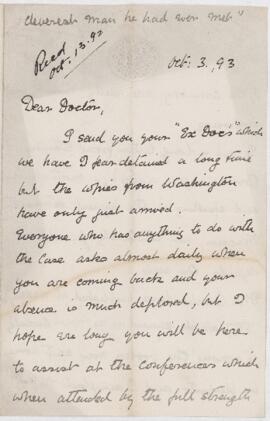 cleverest man he had ever met"
Recd
Oct. 13. 92
Oct. 3. 93
Dear Doctor,
I send you your "Ex Docs" which
we have I fear detained a long time
but the copies from Washington
have only just arrived.
Everyone who has anything to do with
the Case asks almost daily when
you are coming back and your
absence is much deplored, but I
hope ere long you will be here
to assist at the Conferences which
when attended by the full strength